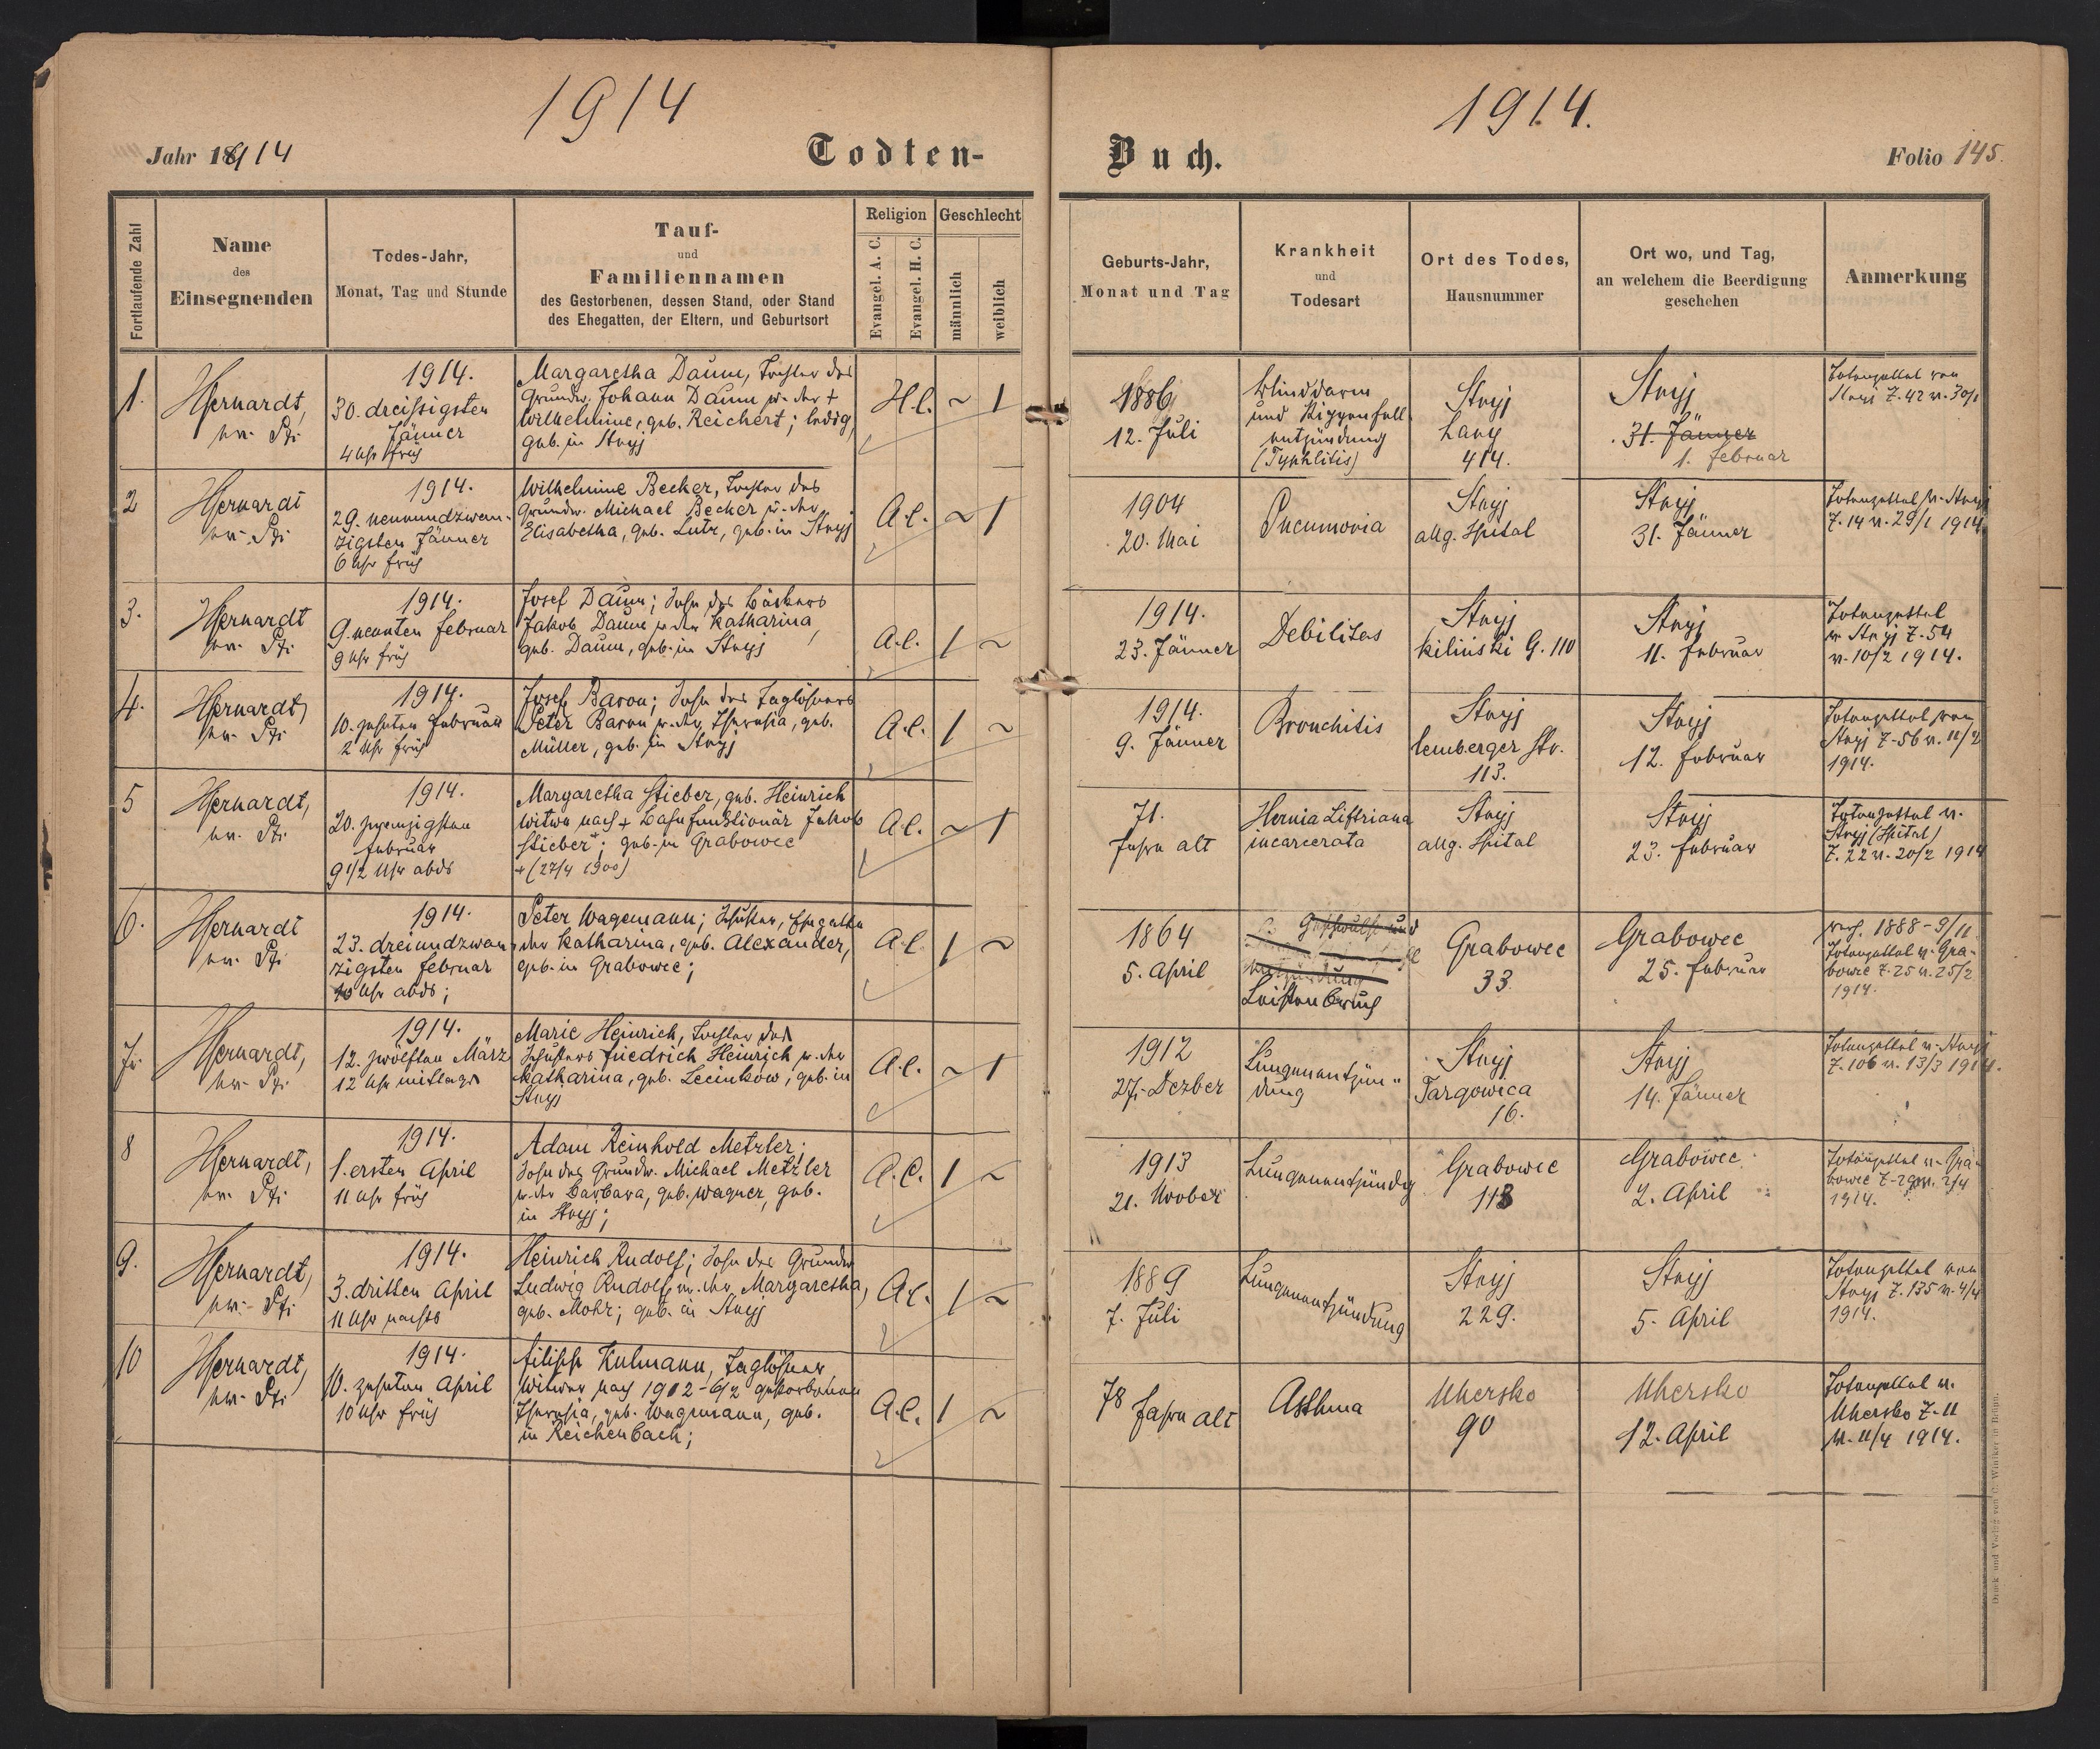 1914
Jahr 1914
Todten-
Fortlaufende Zahl
Name
des
Einsegnenden
Todes-Jahr,
Monat, Tag und Stunde
Tauf-
und
Familiennamen
des Gestorbenen, dessen Stand, oder Stand
des Ehegatten, der Eltern, und Geburtsort
Religion
Evangel. A. C.
Evangel. H. C.
Geschlecht
männlich
weiblich
1.
1914.
30. dreissigsten
Jänner
4 Uhr früh
Margaretha Daum, Tochter des
Grundw. Johann Daum u. der +
Wilhelmine, geb. Reichert; ledig,
geb. in Stryj
H.C. ~ 1
2
1914.
29. neunundzwan-
zigsten Jänner
6 Uhr früh
Wilhelmine Becker, Tochter des
Grundw. Michael Becker u. der
Elisabetha, geb. Lutz, geb. in Stryj
A.C. ~ 1
3.
1914.
9. neunten Februar
9 Uhr früh
Josef Daum; Sohn des Bäckers
Jakob Daum u. der Katharina,
geb. Daum, geb. in Stryj
A.C. 1 ~
4.
1914.
10. zehnten Februar
2 Uhr früh
Josef Baron; Sohn des Taglöhners
Peter Baron u. der Theresia, geb.
Müller, geb. in Stryj
A.C. 1 ~
5
1914.
20. zwanzigsten
Februar
9 1/2 Uhr abds
Margaretha Stieber, geb. Heinrich
Witwe nach + Bahnfunktionär Jakob
Stieber; geb. in Grabowec
+ (27/4 1900)
A.C. ~ 1
6.
1914.
23. dreiundzwan-
zigsten Februar
10 Uhr abds;
Peter Wagemann; Schuster, Ehegatte
der Katharina, geb. Alexander,
geb. in Grabowec;
A.C. 1 ~
7.
1914.
12. zwölften März
12 Uhr mittags
Marie Heinrich, Tochter des
Schusters Friedrich Heinrich u. der
Katharina, geb. Lecinkow, geb. in
Stryj
A.C. ~ 1
8
1914.
1. ersten April
11 Uhr früh
Adam Reinhold Metzler;
Sohn des Grundw. Michael Metzler
u. der Barbara, geb. Wagner, geb.
in Stryj;
A.C. 1 ~
9.
1914.
3. dritten April
11 Uhr nachts
Heinrich Rudolf; Sohn des Grundw.
Ludwig Rudolf u. der Margaretha,
geb. Mohr; geb. in Stryj
A.C. 1 ~
10
1914.
10. zehnten April
10 Uhr früh
Filipp Kulmann, Taglöhner
Witwer nach 1912-6/2 gestorbenen
Theresia, geb. Wagemann, geb.
in Reichenbach;
A.C. 1 ~
1914.
Buch.
Folio 145.
Geburts-Jahr,
Monat und Tag
Krankheit
und
Todesart
Ort des Todes,
Hausnummer
Ort wo, und Tag,
an welchem die Beerdigung
geschehen
Anmerkung
1886
12. Juli
Blinddarm
und Rippenfell
entzündung
(Typhlitis)
Stryj
Lany
414.
Stryj
31. Jänner
1. Februar
Totenzettel von
Stryj Z. 42 v. 30/1
1904
20. Mai
Pneumonia
Stryj
allg. Spital
Stryj
31. Jänner
Totenzettel v. Stryj
Z. 14 v. 29/1 1914
1914.
23. Jänner
Debilitas
Stryj
Kilinski G. 110
Stryj
11. Februar
Totenzettel
v. Stryj Z. 54
v. 10/2 1914.
1914.
9. Jänner
Bronchitis
Stryj
Lemberger Str.
113.
Stryj
12. Februar
Totenzettel von
Stryj Z-56 v. 11/2
1914.
71.
Jahre alt
Hernia Littriana
incarcerata
Stryj
allg. Spital
Stryj
23. Februar
Totenzettel v.
Stryj (Spital)
Z. 22 v. 20/2 1914
1864
5. April
Geschwulst und
entzündung
Leistenbruch
Grabowec
33
Grabowec
25. Februar
1888-9/11
Totenzettel v. Gra-
bowec Z. 25 v. 25/2
1914.
1912
27. Dezber
Lungenentzün-
dung
Stryj
Targowica
16.
Stryj
14. Jänner
Totenzettel v. Stryj
Z. 106 v. 13/3 1914.
1913
21. Novber
Lungenentzündg
Grabowec
113
Grabowec
2. April
Totenzettel v. Gra-
bowec Z-29 v. 2/4
1914.
1889
7. Juli
Lungenentzündung
Stryj
229.
Stryj
5. April
Totenzettel von
Stryj Z. 135 v. 4/4
1914.
78
Jahre alt
Asthma
Uhersko
90
Uhersko
12. April
Totenzettel v.
Uhersko Z. 11
v. 11/4 1914.